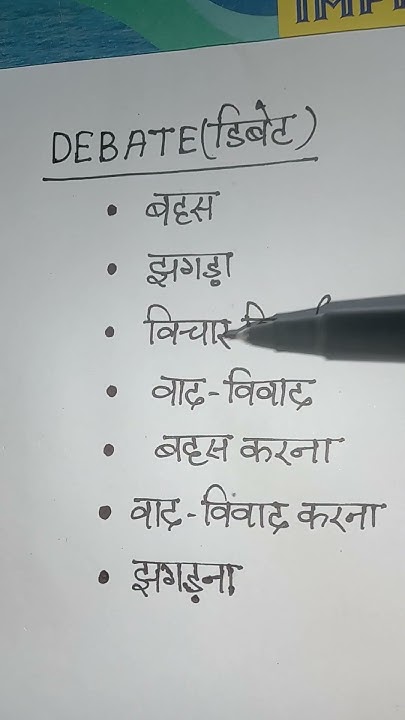 DEBATE(डिबेट)
• बहस
• झगड़ा
• विचार
• वाद-विवाद
• बहस करना
• वाद-विवाद करना
• झगड़ना